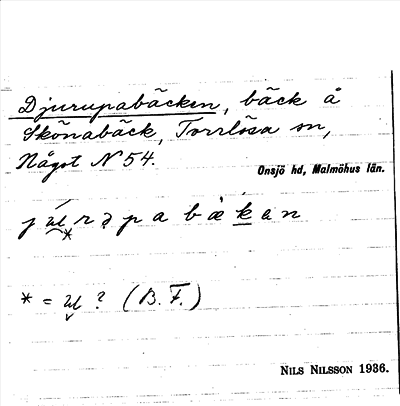 Djurupabäcken, bäck å
Skönabäck, Torrlösa sn,
Något N 54.
Onsjö hd, Malmöhus län.
* = ? (B. F.)
NILS NILSSON 1936.